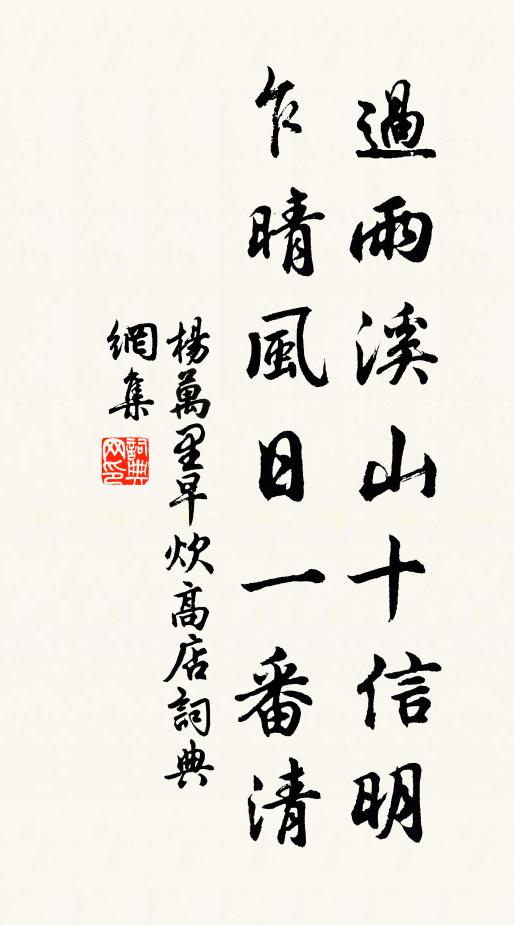 過雨溪山十信明
乍晴風日一番清
楊萬里早炊高店詞典
網集
詞典
网印